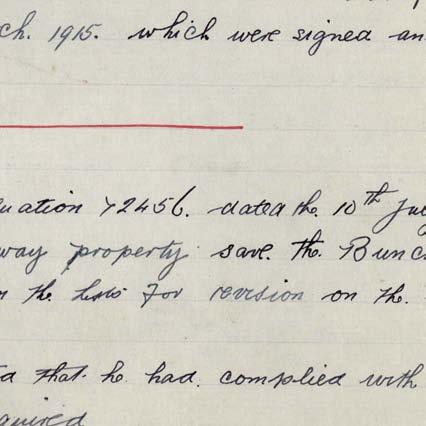 ch. 1915. which were signed an
uation 72456. dated the 10th July
way property save. the Bunc
n the lists for revision on the.
d that he had. complied with
quired